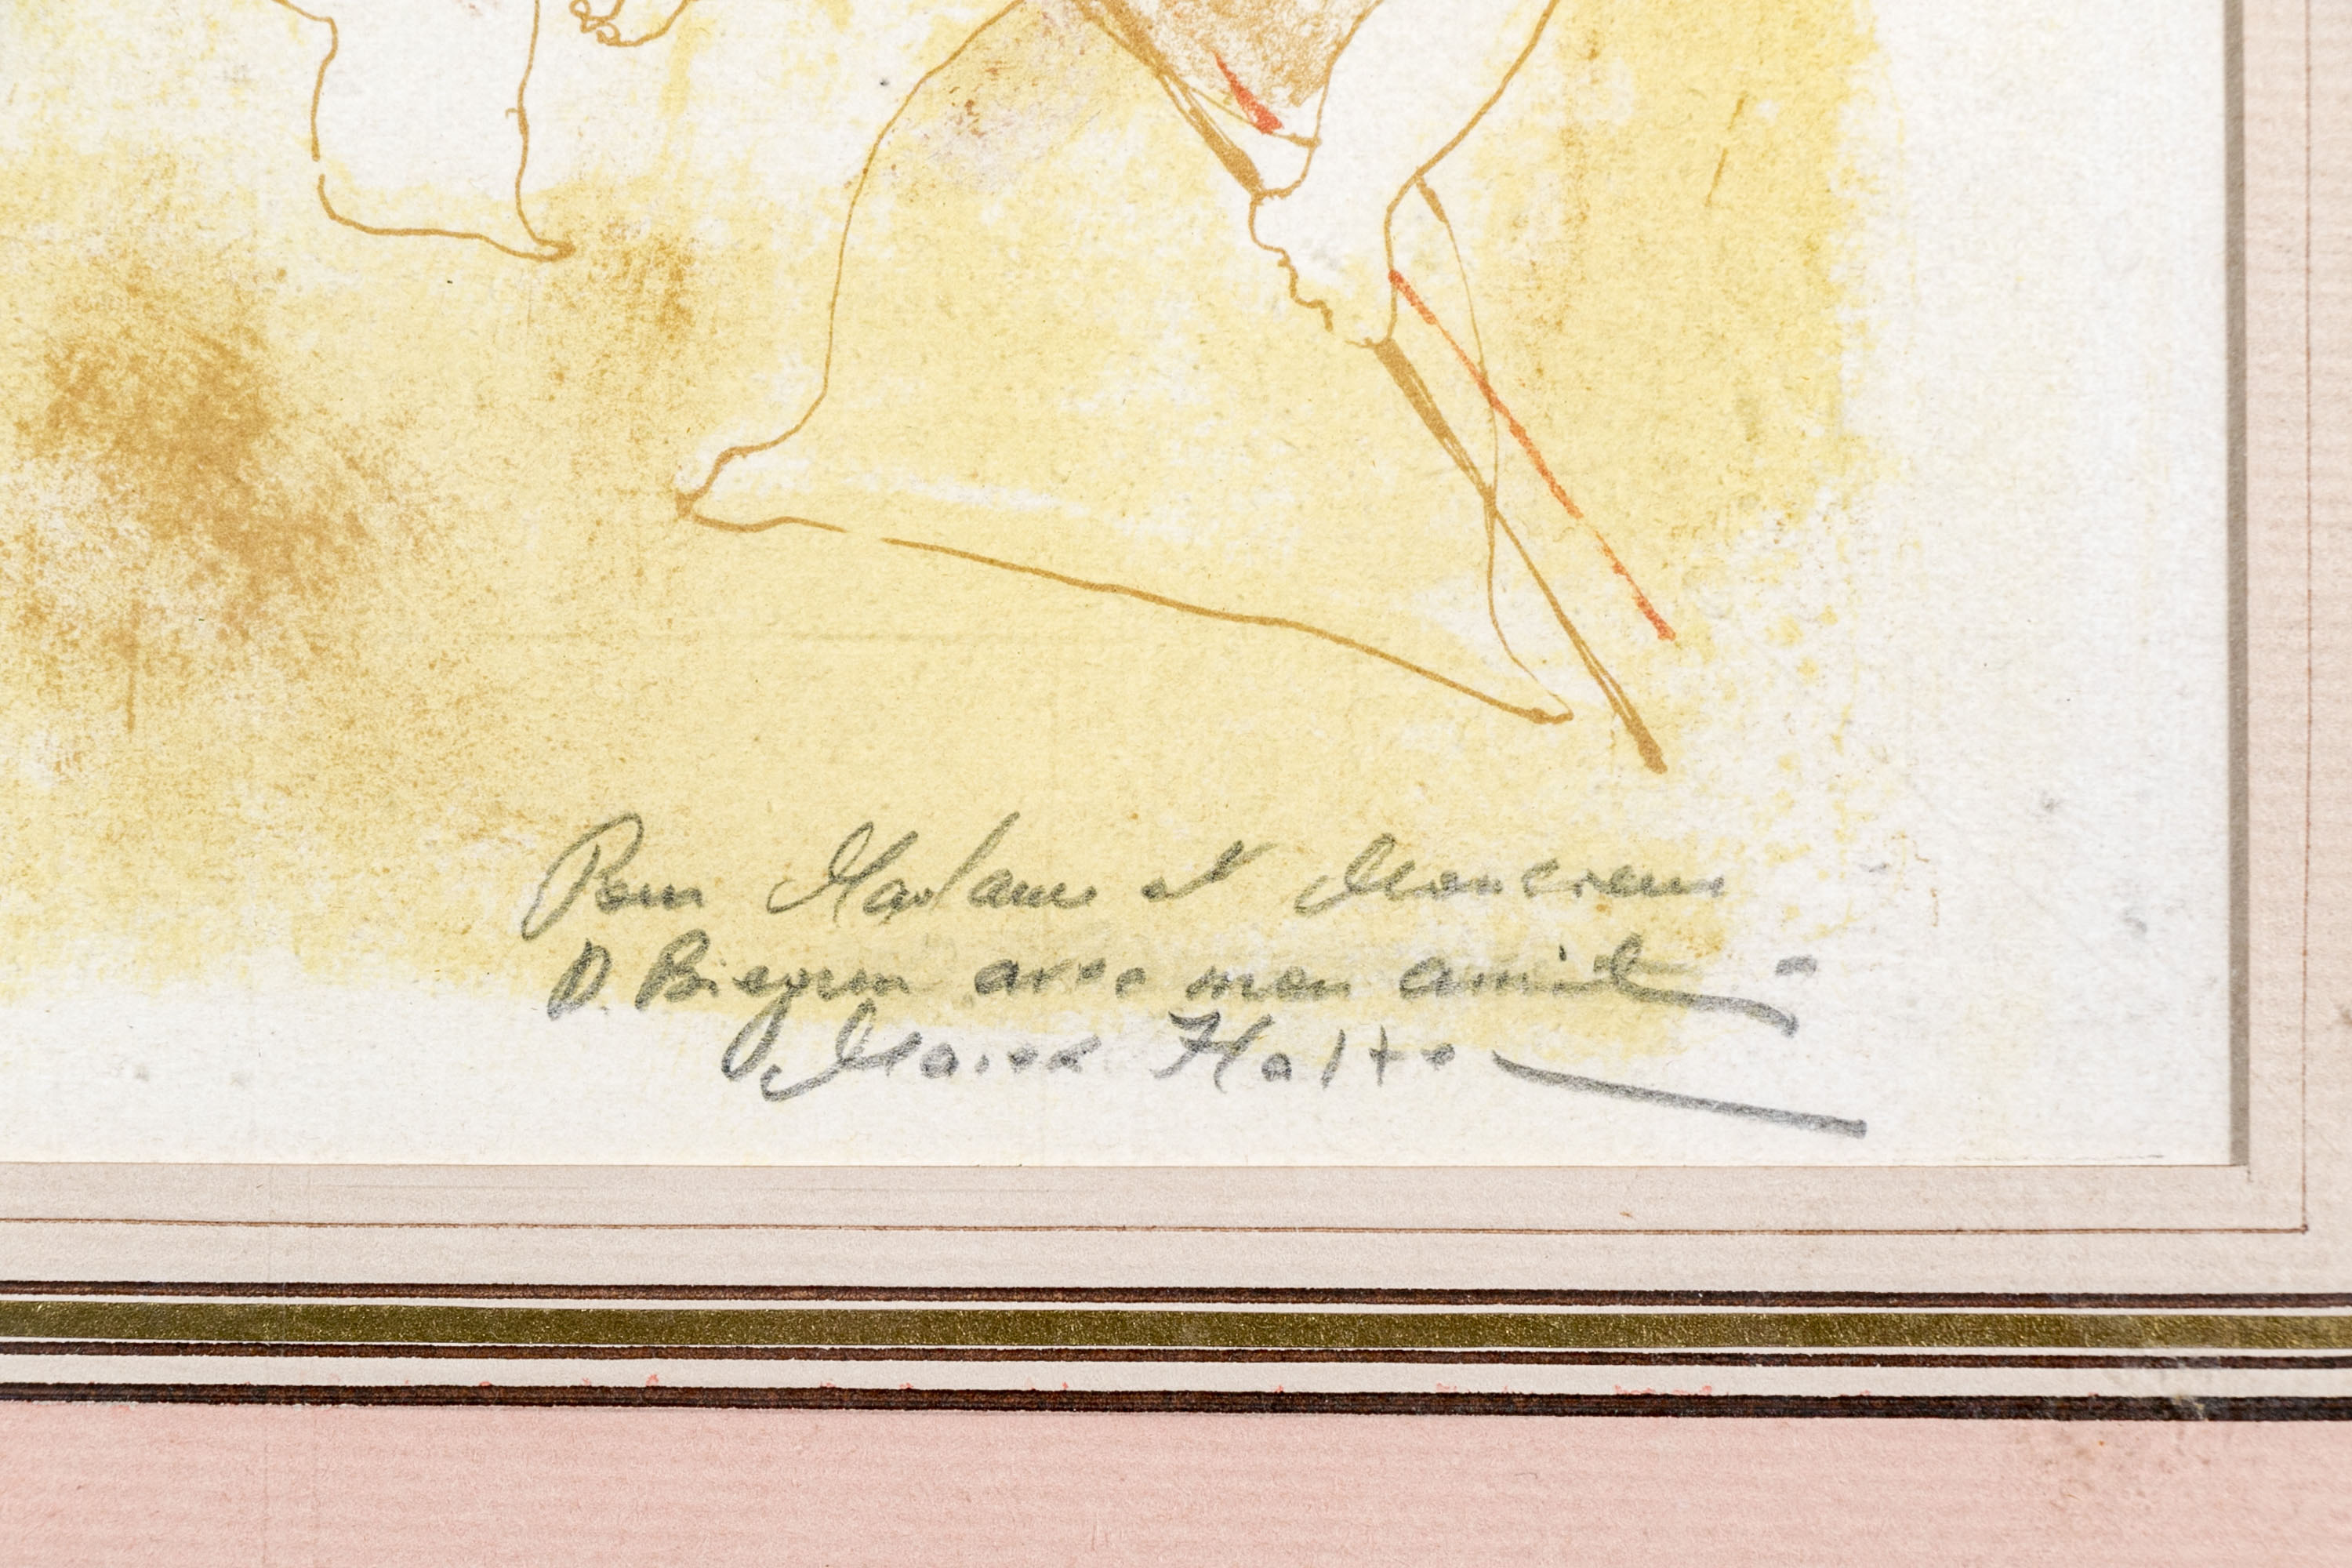 Pour Madame et Monsieur
D. avec mon amitié
Marek Halter